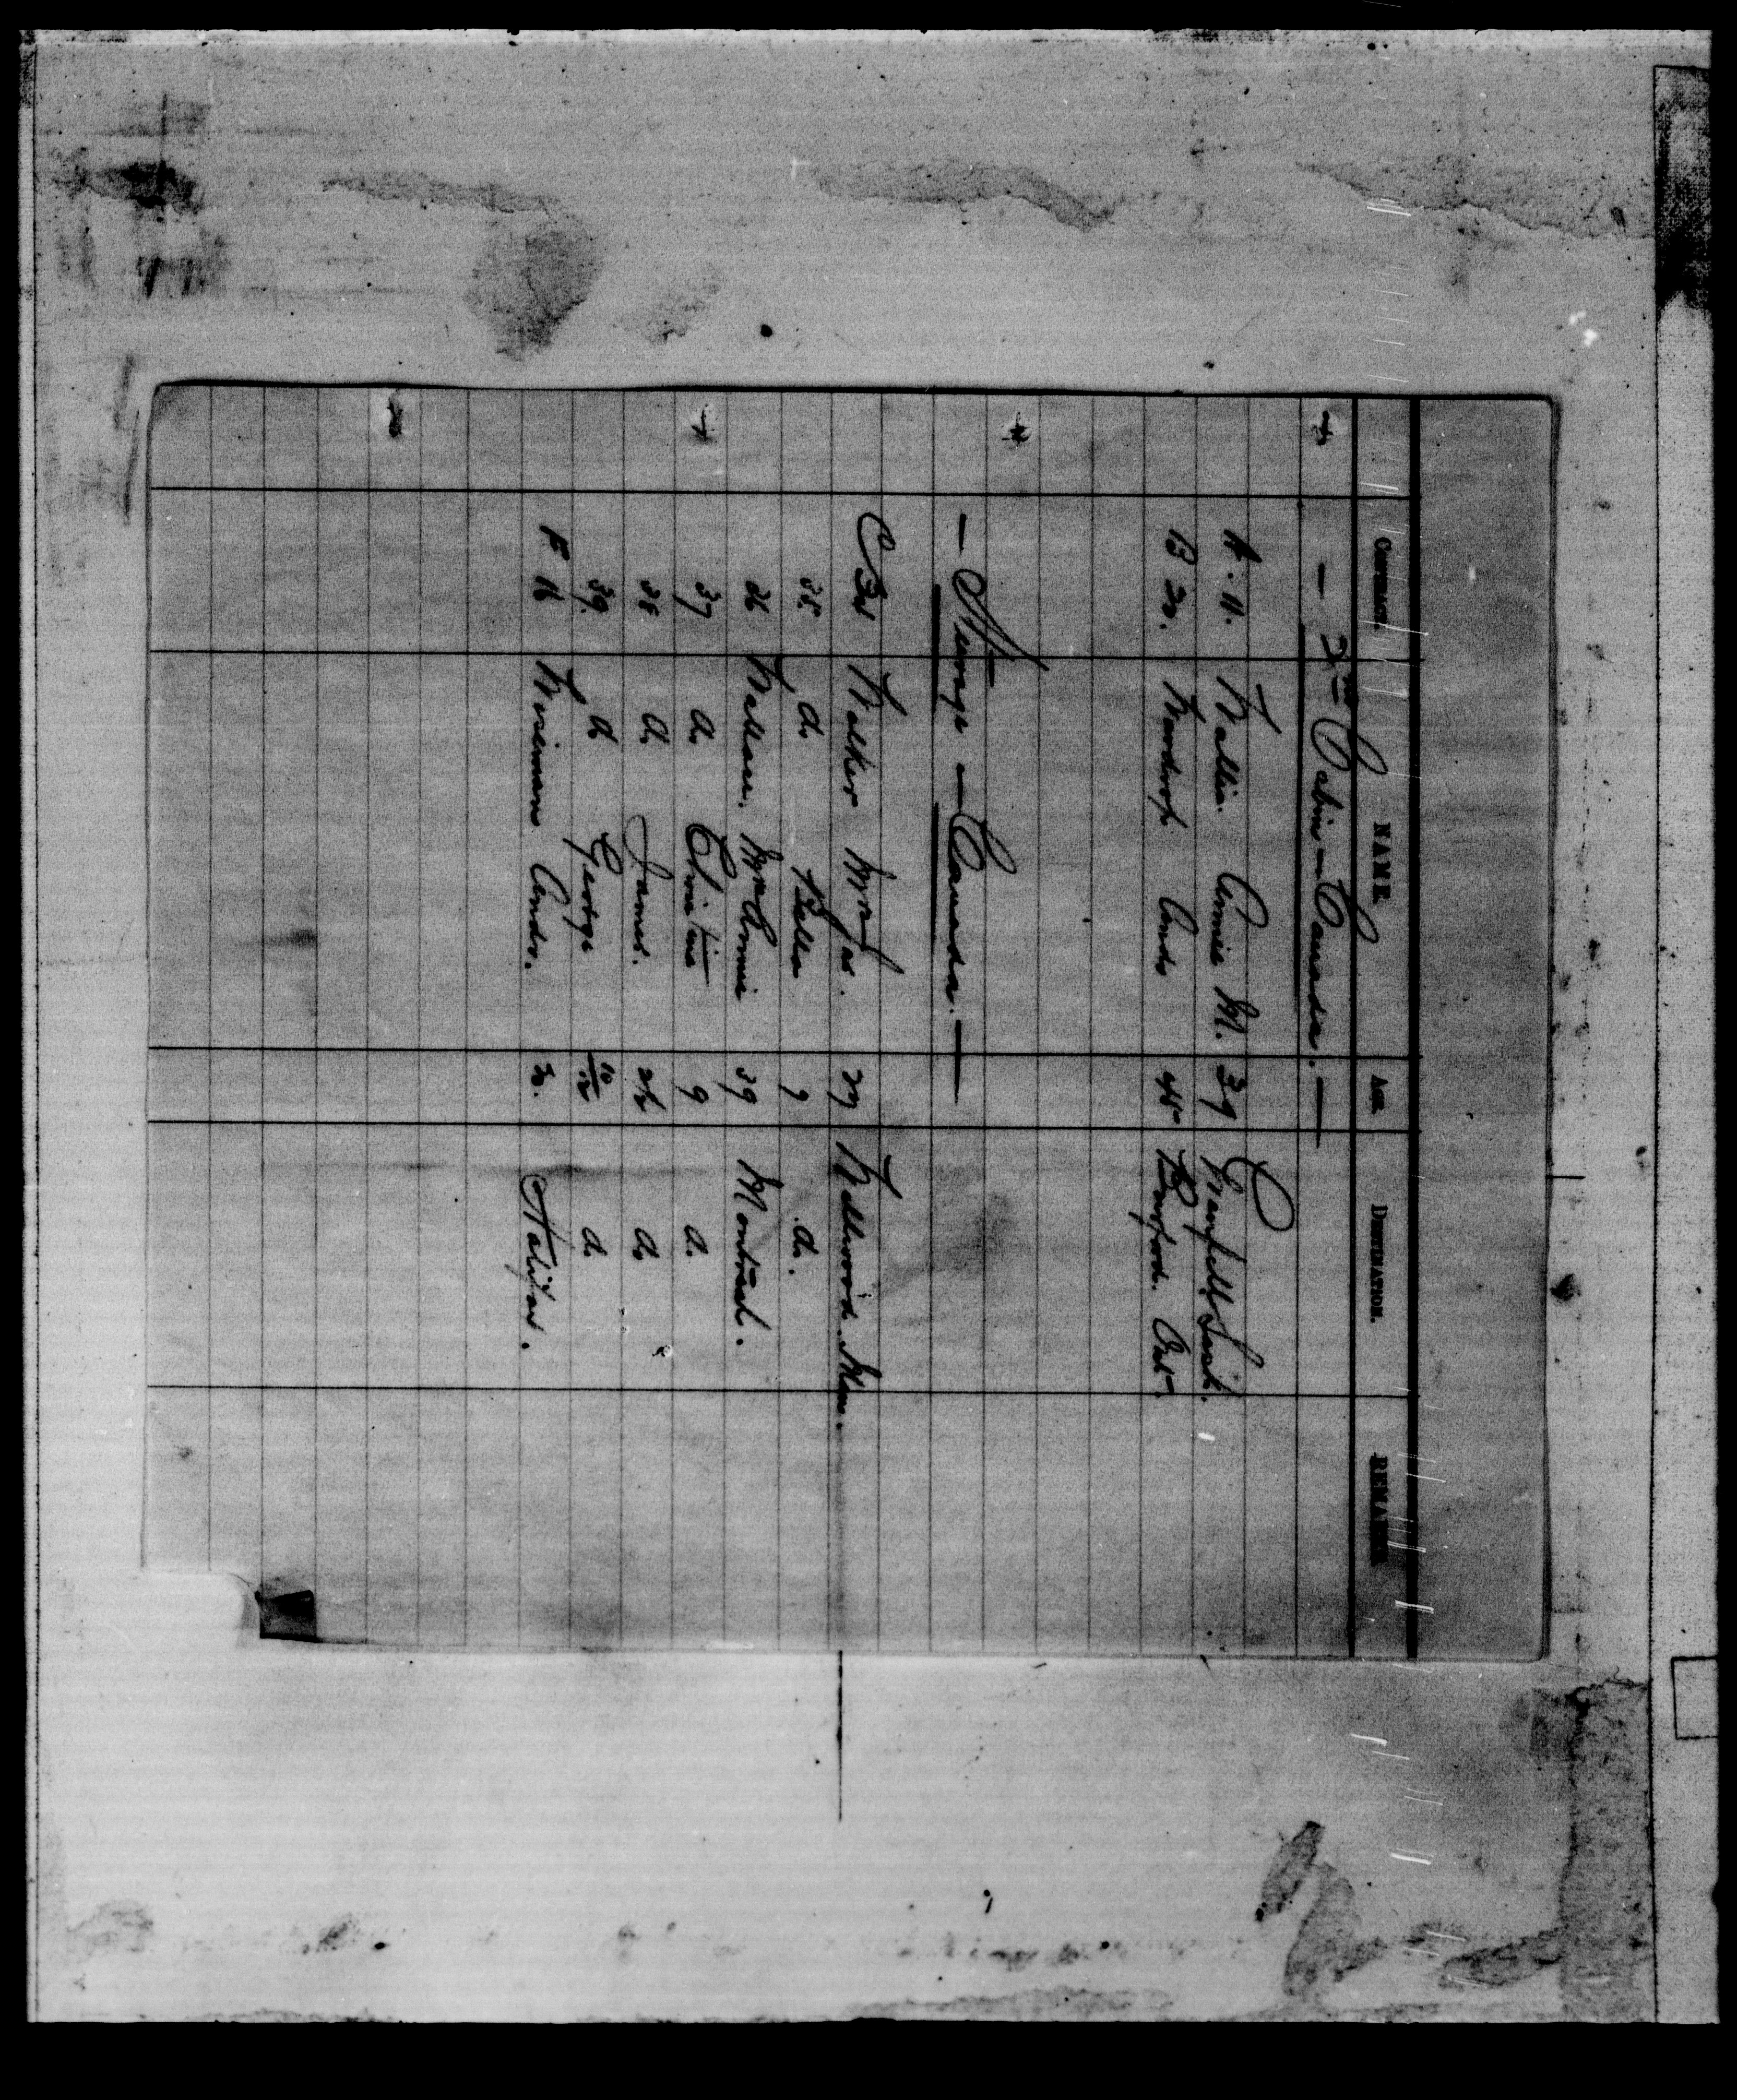 CONTRACT. NAME AGE DESTINATION. REMARKS
— 2nd Cabin — Canada. —
A. 11. Wallis Annie M. 39 Grenfell Sask.
B 20. Wardrop Andw 45 Ont.
— Steerage — Canada. —
C 34 Walker Mrs Jas. 27 Wellwood Man.
35. do Bella 7 do.
36 Wallace. Mrs Annie 39 Montreal.
37 do Christina 9 do
38 do James. do
39. do George 10/12 do
F. 16 Andw. 30. Halifax.